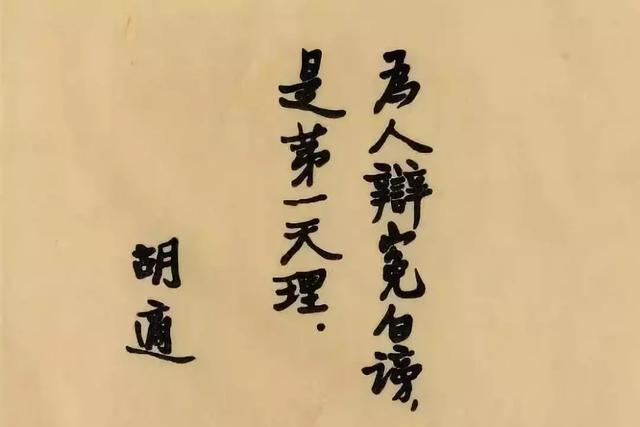 為人辯冤白謗，
是第一天理．
胡適